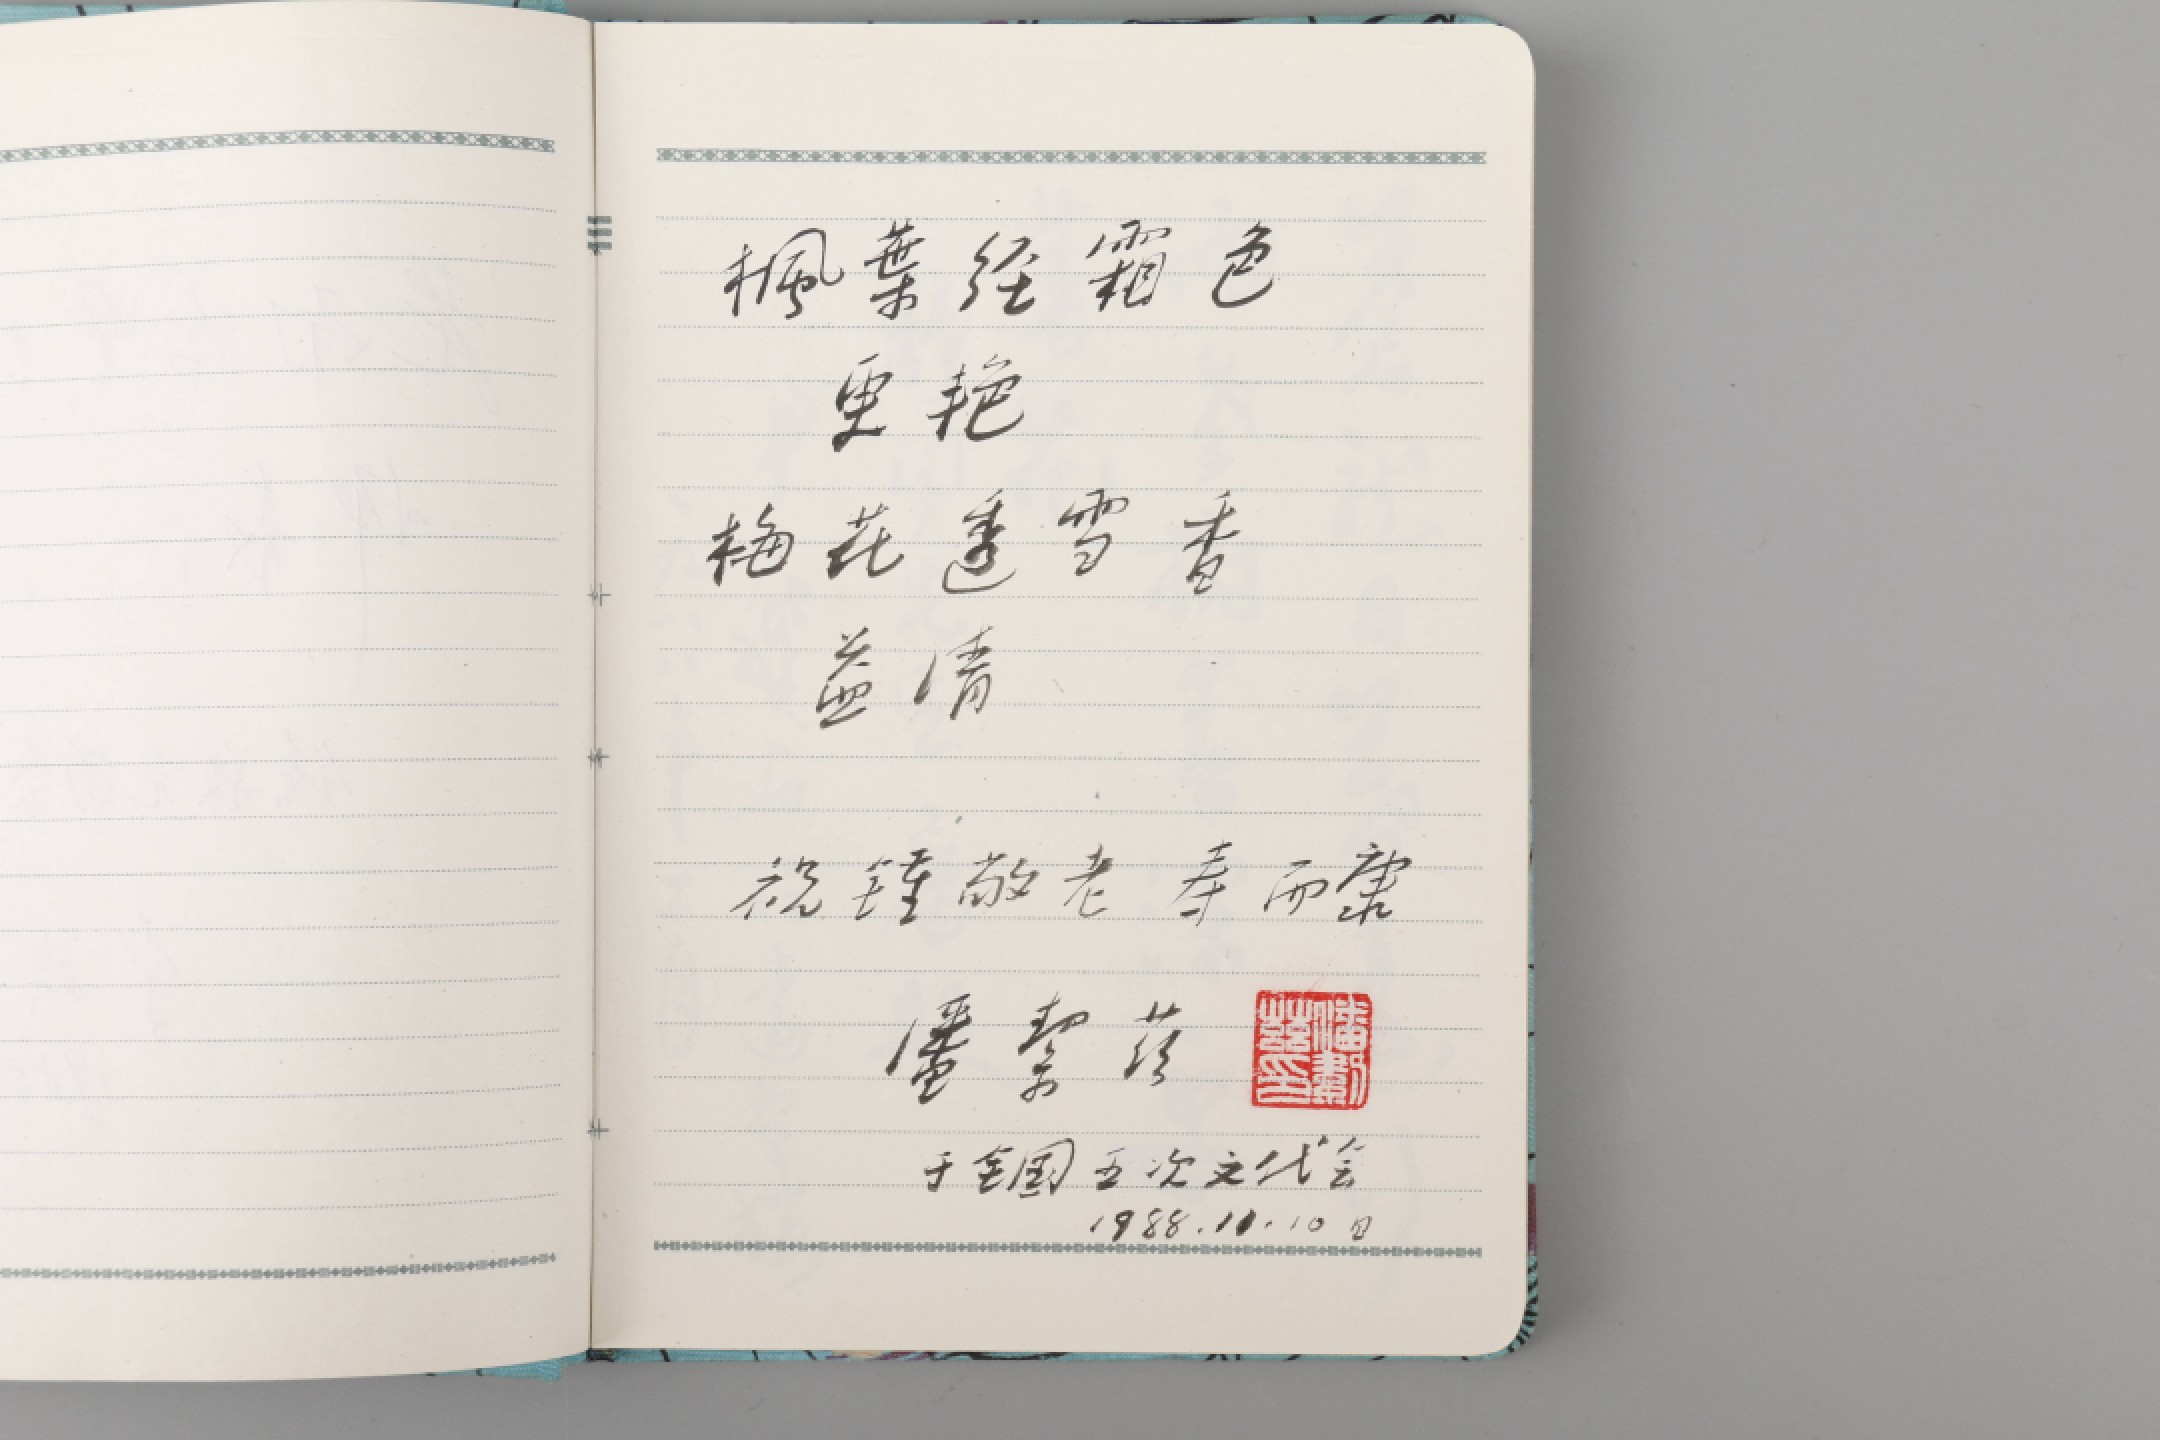 楓葉经霜色
更艳
梅花透雪香
益清
祝鍾敬老 寿而康
潘絜兹
于全国五次文代会
1988.11.10日